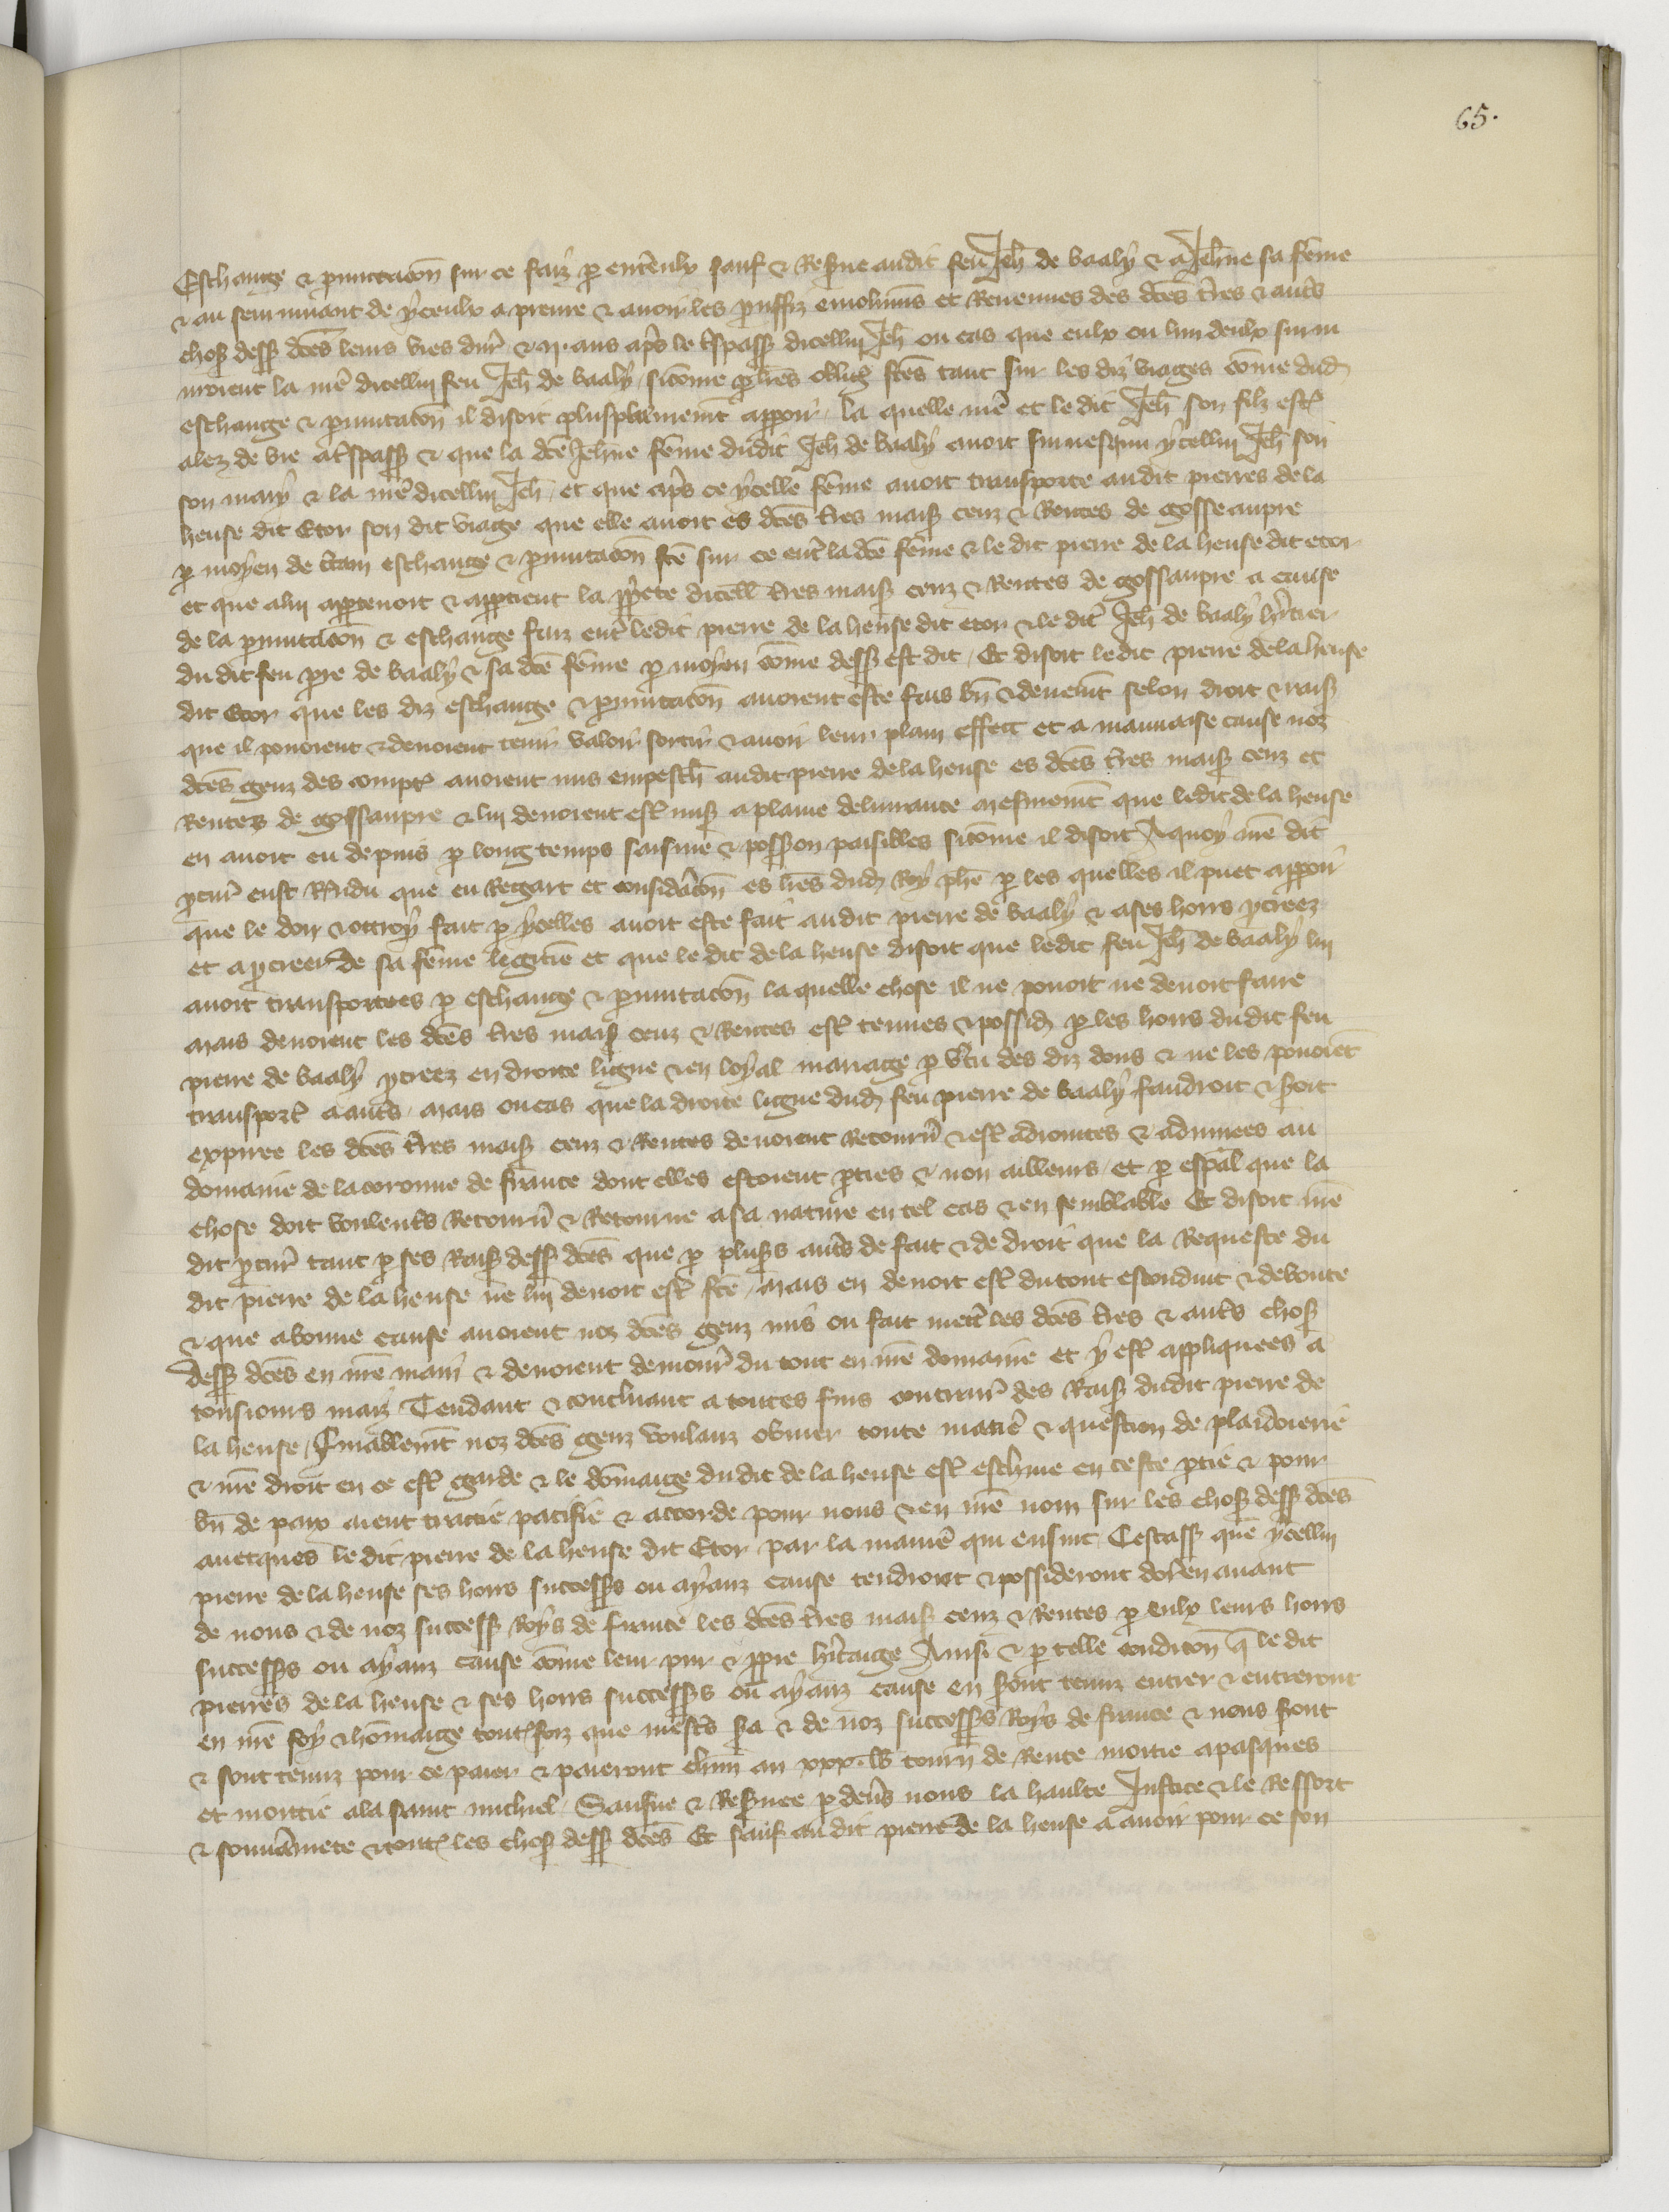 65.
Eschange & permutacion sur ce faiz par entreulx sauf & Reserve audit feu Jeh de baaly & a Jehne sa feme
& au seurvivant de yceulx a prenre & avoir les prouffiz emolumes et Revenues des dces tres & autrs
choses dess dces leurs vies dur & IX ans aprs le trespass dicellui Jeh ou cas que eulx ou lun deulx survi
vroient la mere dicellui feu Jeh de baaly sicome par lres obligs fces tant sur les diz viages come dud
eschange & permutacon il disoit plusplainement apparoir la quelle mere et le dit Jeh son filz estr
alez de vie a trespass & que la dce Jehne feme dudit Jeh de baaly avoit survesqui ycellui Jeh son
son mary & la mere dicellui Jeh et que aprs ce ycelle feme avoit transporte audit pierres de la
heuse dit Etor son dit viage que elle avoit es dces tres mais cenz & Rentes de gosseaupre
par moyen de certain eschange & permutacon fce sur ce entre la dce feme & le dit pierre de la heuse dit etor
et que a lui appartenoit & appartient la pprete dicell tres mais cenz & Rentes de gossaupre a cause
de la permutacion & eschange faiz entr ledit pierre de la heuse dit etor & le dit Jeh de baaly hritier
du dit feu pre de baaly & sa dce feme par moyen come dess est dit Et disoit ledit pierre de la heuse
dit Etor que les diz eschange & permutacon avoient este fais bn & deuemt selon droit & rais
que il povoient & devoient tenir valoir sortir & avoir leur plain effect et a mauvaise cause noz
dces genz des compt avoient mis empesch audit pierre de la heuse es dces tres mais cenz et
Rentes de gossaupre & lui devoient estr mis a plaine delivrance mesmemt que ledit de la heuse
en avoit eu depuis par long temps saisine & possion paisibles sicome il disoit Aquoy nre dit
procur eust Rndu que eu Regart et consideracon es lres dud Roy phe par les quelles il puet apparoir
que le don & ottroy fait par ycelles avoit este fait audit pierre de baaly & a ses hoirs procreez
et a procreer de sa feme legitie et que le dit de la heuse disoit que ledit feu Jeh de baaly lui
avoit transportees par eschange & permutacon la quelle chose il ne povoit ne devoit faire
mais devoient les dces tres mais cenz & Rentes estr tenues & possid par les hoirs dudit feu
pierre de baaly procreez en droite ligne & en loyal mariage par vertu des diz dons & ne les povoiet
transportr a autrs mais ou cas que la droite ligne dud feu pierre de baaly faudroit & seroit
expiree les dces tres mais cenz & Rentes devoient Retourn & estr adiointes & adunees au
domaine de la coronne de france dont elles estoient parties & non ailleurs et par espal que la
chose doit voulentrs Retourn & Retourne a sa nature en tel cas & en semblable Et disoit nre
dit procur tant par ses Rais dess dces que par pluss autrs de fait & de droit que la Requeste du
dit pierre de la heuse ne lui devoit estr fce mais en devoit estr du tout esconduit & deboute
& que a bonne cause avoient noz dces genz mis ou fait mettr les dces tres & autrs choses
dess dces en nre main & devoient demour du tout en nre domaine et y estr appliquees a
tousiours mais Tendant & concluant a toutes fins contrair des Rais dudit pierre de
la heuse Finablemt noz dces genz voulanz obvier toute matire & question de plaidoierie
& nre droit en ce estr garde & le domaige dudit de la heuse estr eschive en ceste partie & pour
bn de paix aient traitie pacifie & accorde pour nous & en nre nom sur les choses dess dces
avecques le dit pierre de la heuse dit Etor par la manire qui ensuit Cestass que ycellui
pierre de la heuse ses hoirs success ou ayanz cause tendront & possideront doren avant
de nous & de noz success Roys de france les dces tres mais cenz & Rentes par eulx leurs hoirs
success ou ayanz cause come leur pur & ppre hritaige Ainsi & par telle condicon q le dit
pierres de la heuse & ses hoirs success ou ayanz cause en seront tenuz entrer & entreront
en nre foy & homaige toutes foiz que mestrs sera & de noz success Roys de france & nous seront
& sont tenuz pour ce paier & paieront chun an xxx lb tourn de Rente moitie a pasques
et moittie a la saint michiel Saufve & Reservee par devrs nous la haulte Justice & le Ressort
& souvrainete & toutes les choses dess dces Et sauf au dit pierre de la heuse a avoir pour ce son